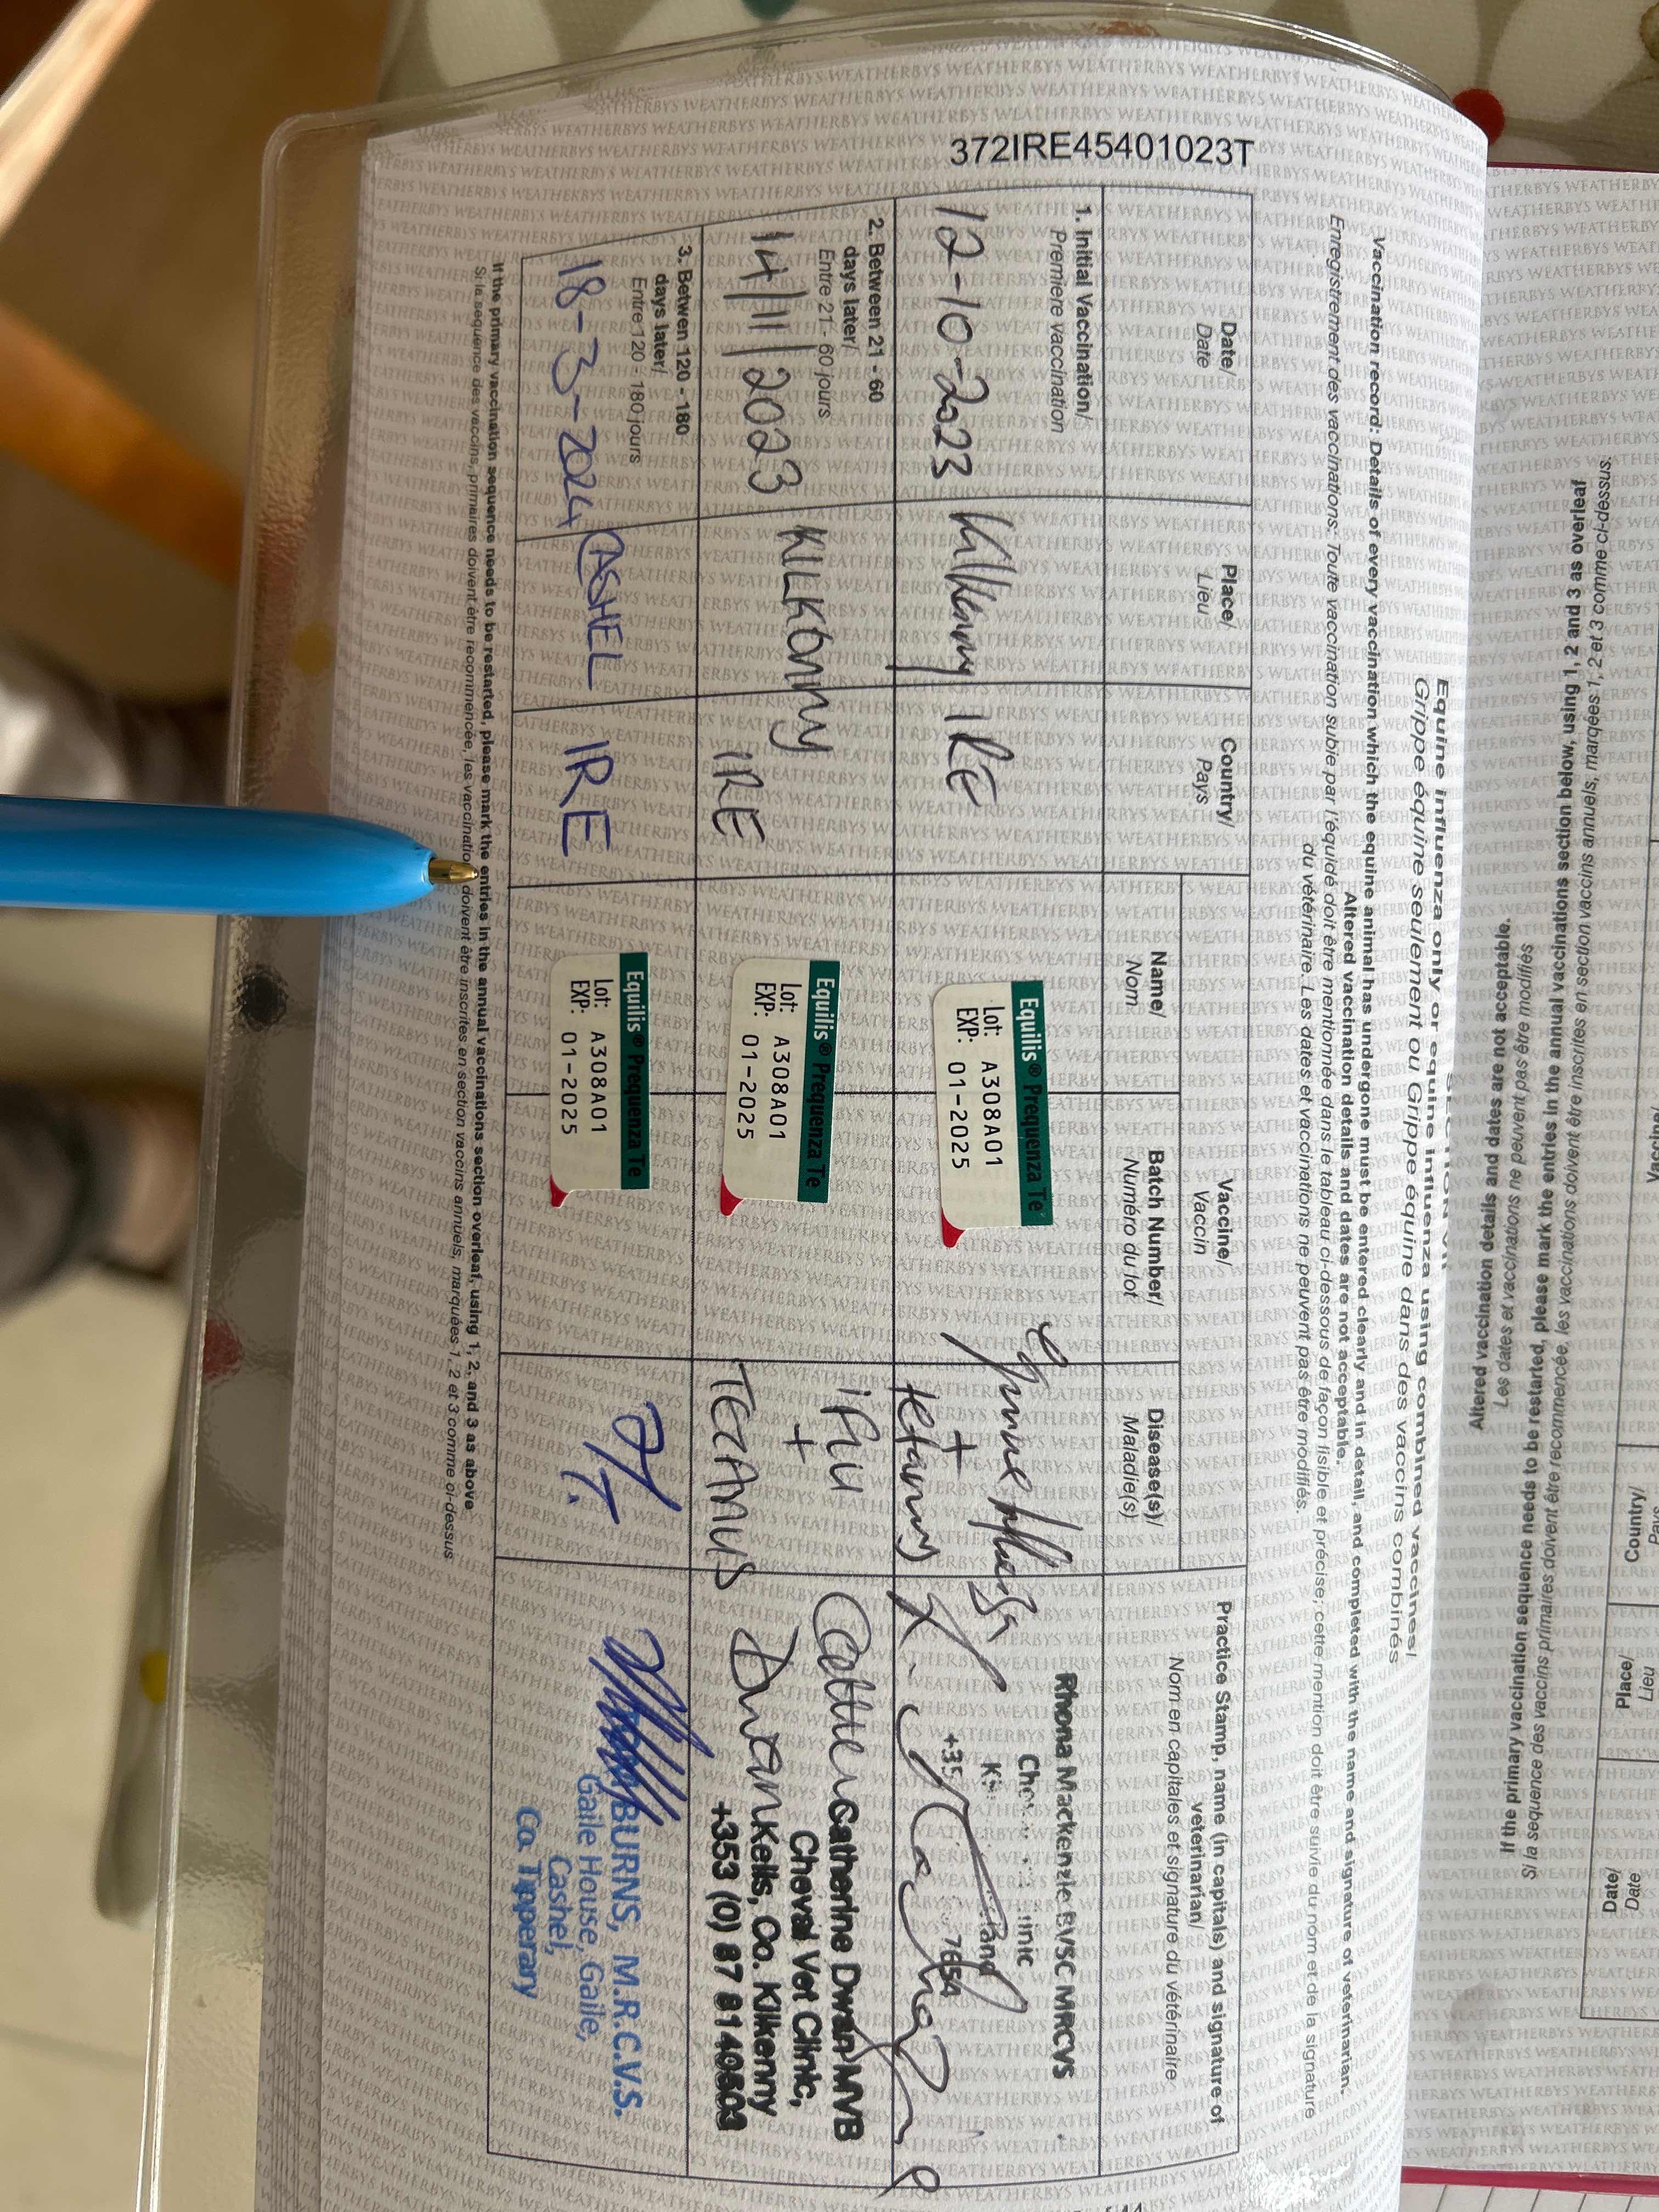 Vaccine/
Country/
Pays
Place/
Lieu
Date/
Date
Altered vaccination details and dates are not acceptable.
Les dates et vaccinations ne peuvent pas être modifiés
If the primary vaccination sequence needs to be restarted, please mark the entries in the annual vaccinations section below, using 1, 2 and 3 as overleaf
Si la sequence des vaccins primaires doivent être recommencée, les vaccinations doivent être inscrites en section vaccins annuels, marqées 1, 2 et 3 comme ci-dessus.
Equine influenza only or equine influenza using combined vaccines/
Grippe équine seulement ou Grippe équine dans des vaccins combinés
Vaccination record: Details of every vaccination which the equine animal has undergone must be entered clearly and in detail, and completed with the name and signature of veterinarian.
Altered vaccination details and dates are not acceptable.
Enregistrement des vaccinations: Toute vaccination subie par l'équidé doit être mentionnée dans le tableau ci-dessous de façon lisible et précise; cette mention doit être suivie du nom et de la signature
du vétérinaire. Les dates et vaccinations ne peuvent pas être modifiés.
372IRE45401023T
Date/
Date
Place/
Lieu
Country/
Pays
Vaccine/
Vaccin
Name/
Nom
Batch Number/
Numéro du lot
Disease(s)/
Maladie(s)
Practice Stamp, name (in capitals) and signature of
veterinarian/
Nom en capitales et signature du vétérinaire
1. Initial Vaccination/
Premiere vaccination
12-10-2023
Kilkenny
IRE
Equilis® Prequenza Te
Lot: A308A01
EXP: 01-2025
+
tetanus
Rhona Mackenzie BVSC MRCVS
2. Between 21 - 60
days later/
Entre 21 - 60 jours
14/11/2023
KILKONNY
IRE
Equilis® Prequenza Te
Lot: A308A01
EXP: 01-2025
+
TETANUS
Catherine Dwan MVB
Cheval Vet Clinic,
Kells, Co. Kilkenny
+353 (0) 87 8140503
3. Betwen 120 - 180
days later/
Entre 120 - 180 jours
18-3-2024
CASHEL
IRE
Equilis® Prequenza Te
Lot: A308A01
EXP: 01-2025
BURNS, M.R.C.V.S.
Gaile House, Gaile,
Cashel,
Co. Tipperary
If the primary vaccination sequence needs to be restarted, please mark the entries in the annual vaccinations section overleaf, using 1, 2, and 3 as above
Si la sequence des vaccins, primaires doivent être recommencée, les vaccinations doivent être inscrites en section vaccins annuels, marquées 1, 2 et 3 comme ci-dessus